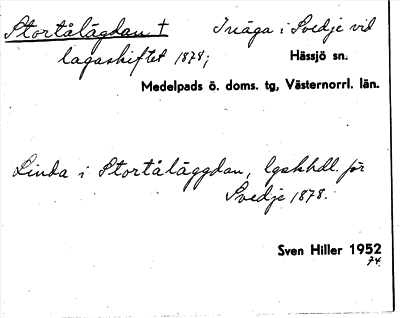 Stortålägdan † Inäga i Svedje vid
lagaskiftet 1878; Hässjö sn.
Medelpads ö. doms. tg, Västernorrl. län.
Linda i Stortåläggdan, lgskhdl. för
Svedje 1878.
Sven Hiller 1952
74.